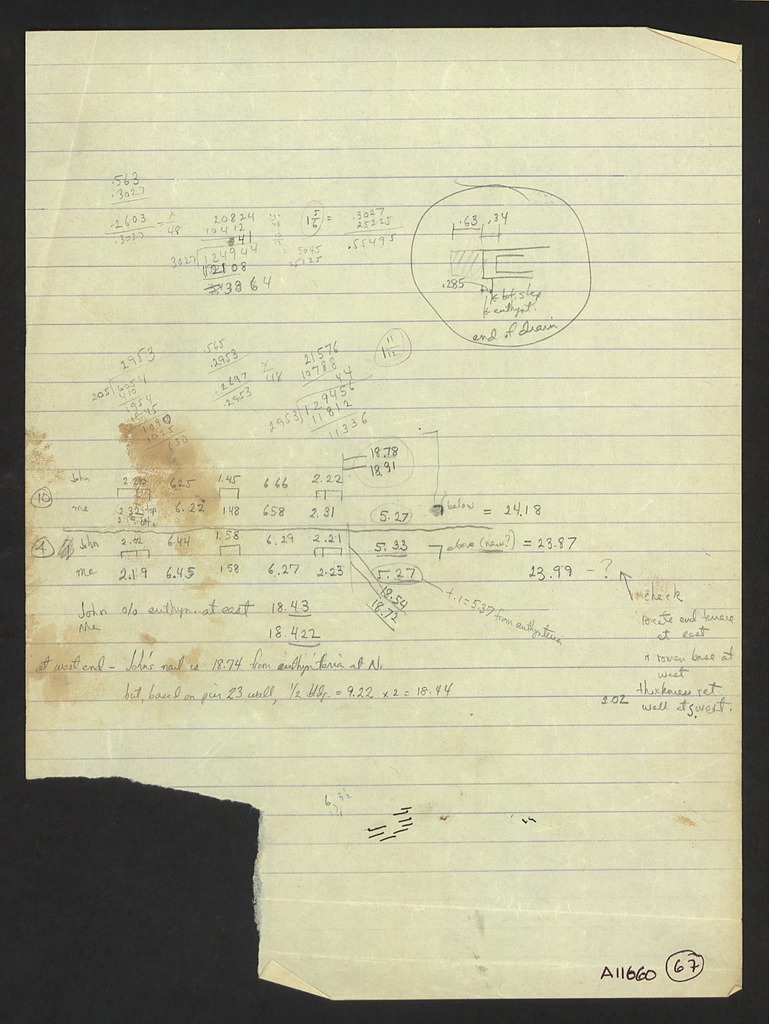 .563
.3027
.2603
.3027
x
48
20824
10412
41
3027 124944
12108
3864
1 5/6 =
.3027
25225
.55495
5045
25225
.63 .34
.285
bot. step
euthynt.
end of drain
2953
205 6054
410
1954
.565
.2953
.2697
.2953
x
48
21576
10788
44
2953 129456
11812
11336
1 11/12
18.78
18.91
10 John 625 1.45 6.66 2.22
me 2.32 top 6.22 148 658 2.31 5.27 below = 24.18
4 John 2.02 6.44 1.58 6.29 2.21 5.33 above (new?) = 23.87
me 2.19 6.45 158 6.27 2.23 5.27 23.99 - ?
18.54
18.72
+.1 = 5.37 from euthynteria
John o/o euthyn. at east 18.43
Me 18.422
at west end - John's nail is 18.74 from euthynteria at N.
but, based on pier 23 wall, 1/2 bldg. = 9.22 x 2 = 18.44
check
locate end terrace
at east
roman base at
west
2.02 thickness ret.
wall at s. west.
6
A11660 67